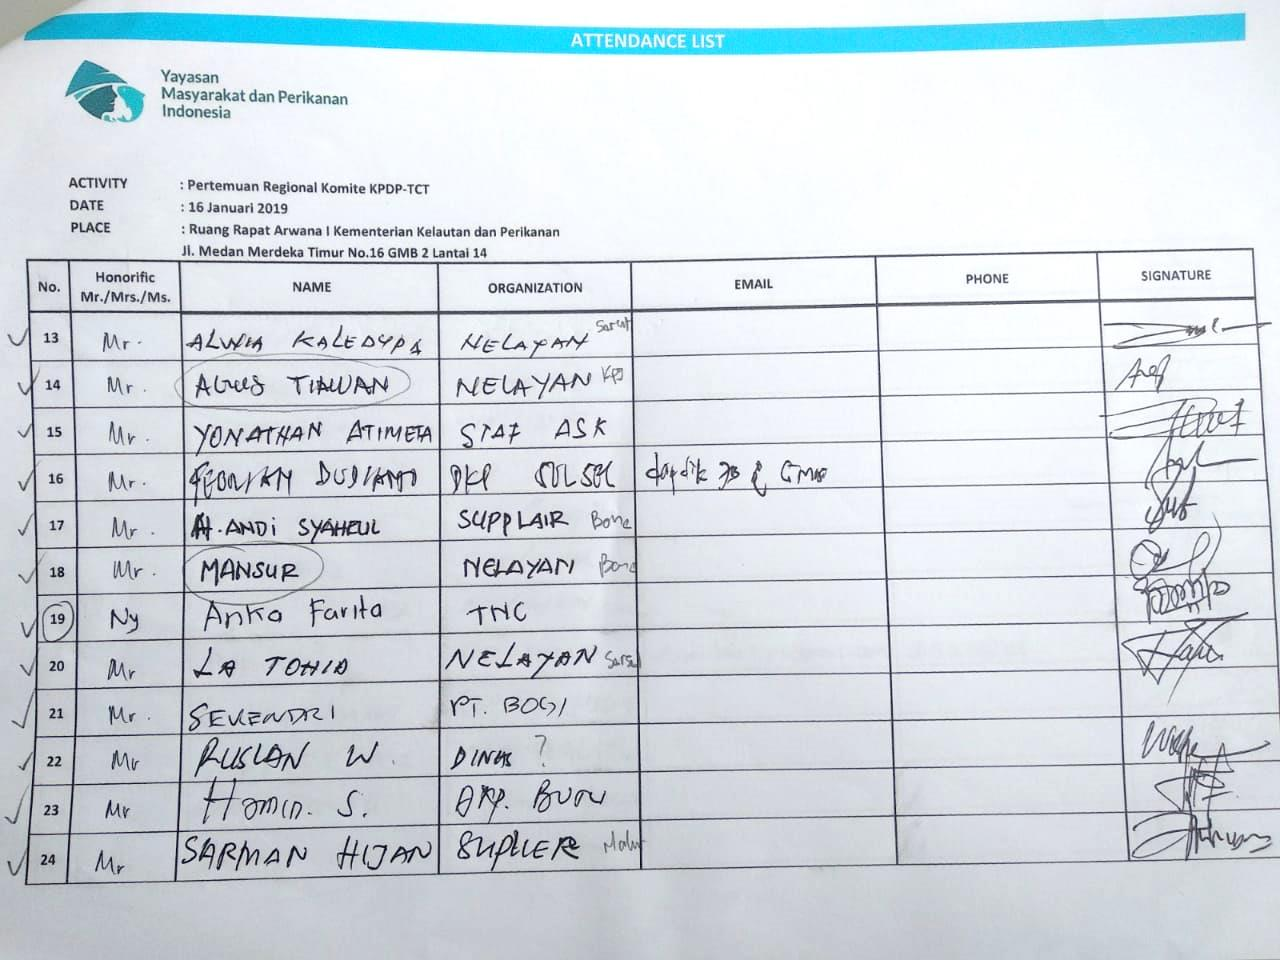 ATTENDANCE LIST
Yayasan
Masyarakat dan Perikanan
Indonesia
ACTIVITY : Pertemuan Regional Komite KPDP-TCT
DATE : 16 Januari 2019
PLACE : Ruang Rapat Arwana I Kementerian Kelautan dan Perikanan
Jl. Medan Merdeka Timur No.16 GMB 2 Lantai 14
No. Honorific Mr./Mrs./Ms. NAME ORGANIZATION EMAIL PHONE SIGNATURE
13 Mr. ALWIA KALEDUPA NELAYAN
14 Mr. AGUS TIAWAN NELAYAN
15 Mr. YONATHAN ATIMETA STAF ASK
16 Mr. DKP SULSEL
17 Mr. H. ANDI SYAHRUL SUPPLAIR Bone
18 Mr. MANSUR NELAYAN Bone
19 Ny Anka Farita TNC
20 Mr LA TOHID NELAYAN
21 Mr. SEVENDRI PT. BOGI
22 Mr RUSLAN W. DINAS ?
23 Mr Hamin. S.
24 Mr SARMAN HIJAN SUPLIER